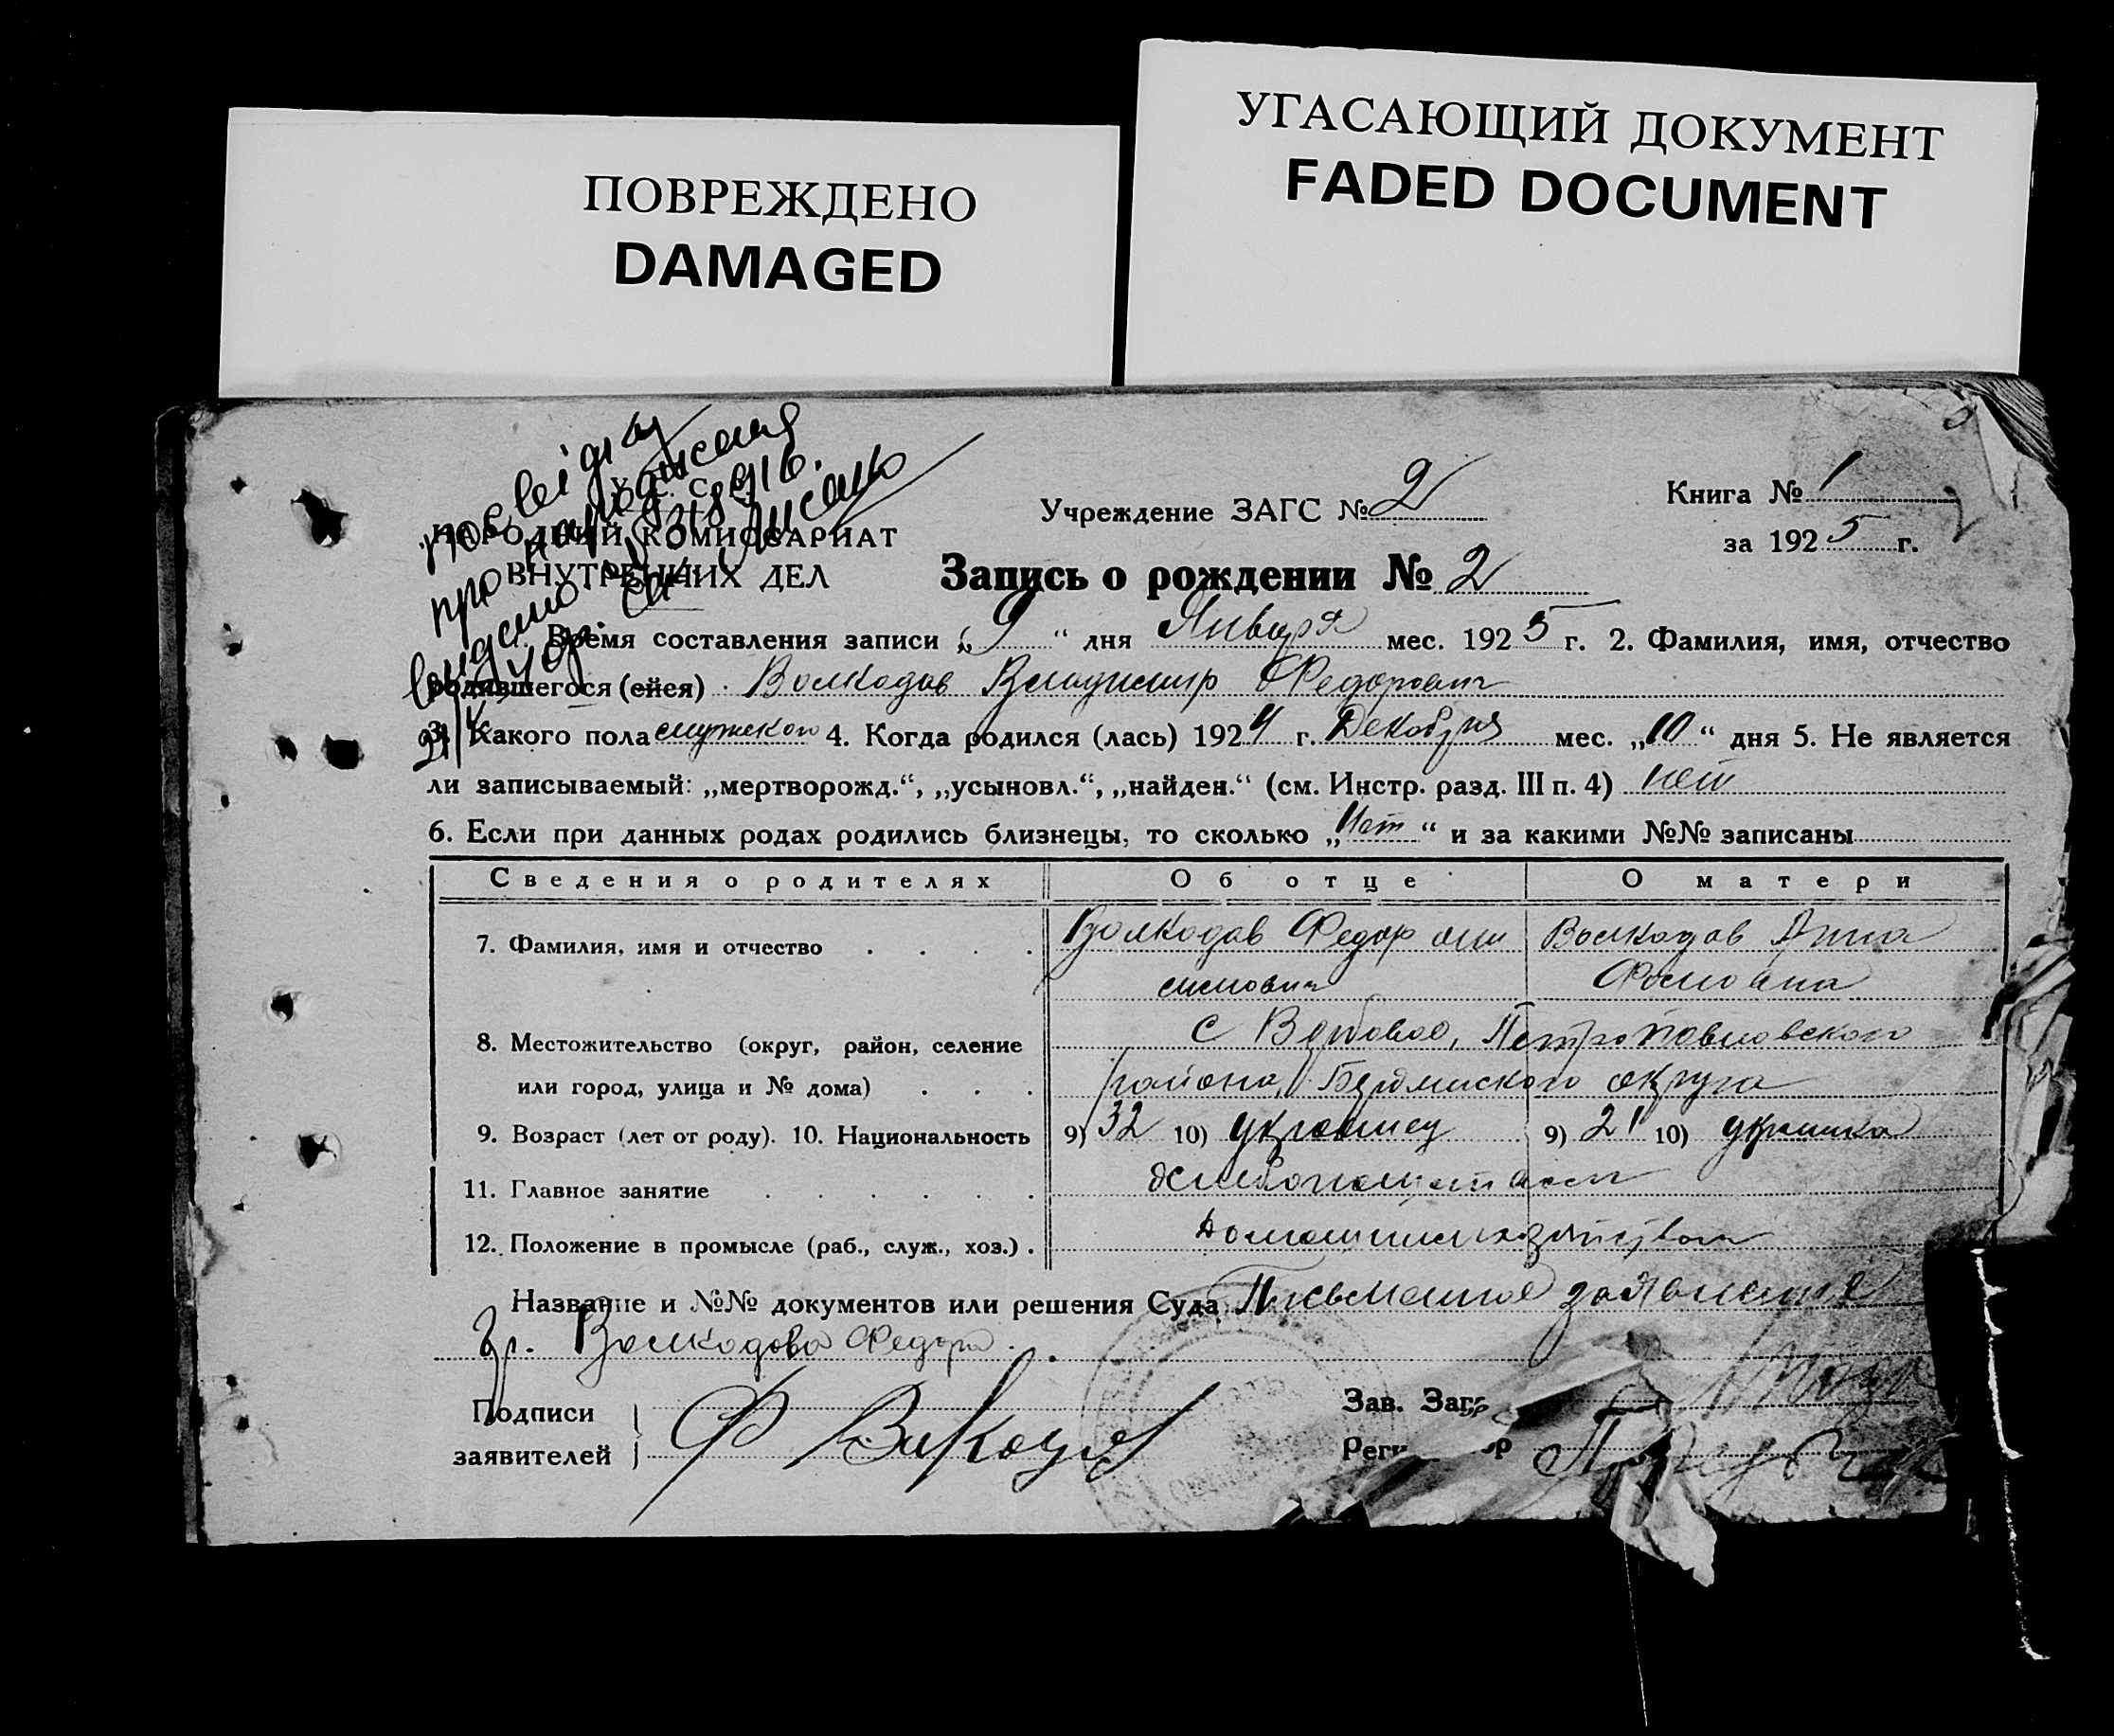 УГАСАЮЩИЙ ДОКУМЕНТ
FADED DOCUMENT
ПОВРЕЖДЕНО
DAMAGED
У. С. С. Р.
НАРОДНЫЙ КОМИССАРИАТ
ВНУТРЕННИХ ДЕЛ
Учреждение ЗАГС № 2
Книга № 1
за 1925 г.
Запись о рождении № 2
1. Время составления записи „9“ дня Января мес. 1925 г. 2. Фамилия, имя, отчество
родившегося (ейся) Волкодав Владимир Федорович
3. Какого пола мужского 4. Когда родился (лась) 1924 г. Декабря мес. „10“ дня 5. Не является
ли записываемый: „мертворожд.“, „усыновл.“, „найден.“ (см. Инстр. разд. III п. 4) нет
6. Если при данных родах родились близнецы, то сколько „Нет“ и за какими №№ записаны
Сведения о родителях Об отце О матери
7. Фамилия, имя и отчество Волкодав Федор Волкодав Анна
8. Местожительство (округ, район, селение с Вербовое, Петропавловского
или город, улица и № дома) района, округа
9. Возраст (лет от роду). 10. Национальность 9) 32 10) украинец 9) 21 10) украинка
11. Главное занятие
12. Положение в промысле (раб., служ., хоз.) Домашним хозяйством
Название и №№ документов или решения Суда Письменное заявление
гр. Волкодава Федора
Подписи
заявителей
Ф
Зав. Загс